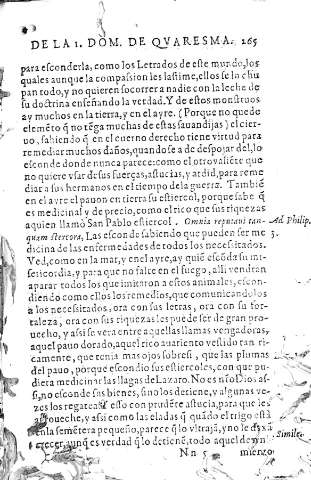 DE LA 1. DOM. DE QVARESMA. 265
para esconderla, como los Letrados de este mundo, los
quales aunque la compassion les lastime, ellos se lo chu
pan todo, y no quieren socorrer a nadie con la leche de
su doctrina enseñando la verdad. Y de estos monstruos
ay muchos en la tierra, y en el ayre. (Porque no que do
elemẽto q̃ no tẽga muchas de estas sauandijas) el cier-
uo, sabiendo q̃ en el cuerno derecho tiene virtud para
remediar muchos daños, quando se a de despojar del, lo
escon de donde nunca parece: como el otro valiẽte que
no quiere vsar de sus fuerças, astucias, y ardid, para reme
diar a sus hermanos en el tiempo de la guerra. Tambiẽ
en el ayre el pauon en tierra su estiercol, porque sabe q̃
es medicinal y de precio, como el rico que sus riquezas
a quien llamò San Pablo estiercol. Omnia reputaui tan-
quam stercora, Las escon de sabiendo que pueden ser me
dicina de las enfermedades de todos los necessitados.
Ved, como en la mar, y en el ayre, ay quiẽ escõda su mi-
sericordia, y para que no falte en el fuego, alli vendran
a parar todos los que imitaron a estos animales, escon-
diendo como ellos los remedios, que comunicandolos
a los necessitados, ora con sus letras, ora con su for-
taleza, ora con sus riquezas les puede ser de gran pro-
uecho, y assi se vera entre aquellas llamas vengadoras,
aquel pauo dorado, aquel rico auariento vestido tan ri-
camente, que tenia mas ojos sobre si, que las plumas
del pauo, porque escondio sus estiercoles, con que pu-
diera medicinar las llagas de Lazaro. No es nr̃o Dios as-
si, no esconde sus bienes, sino los detiene, y algunas ve-
zes los regatea: y esto con prudẽte astucia, para que les
aproueche, y assi como las eladas q̃ quãdo el trigo está
en la semẽtera pequeño, parece q̃ lo vltrajã, y no le dexã
crecer, aunq̃ es verdad q̃ lo detienẽ, todo aquel
Nn 5 mienzo
Ad Philip.
3.
Simile.